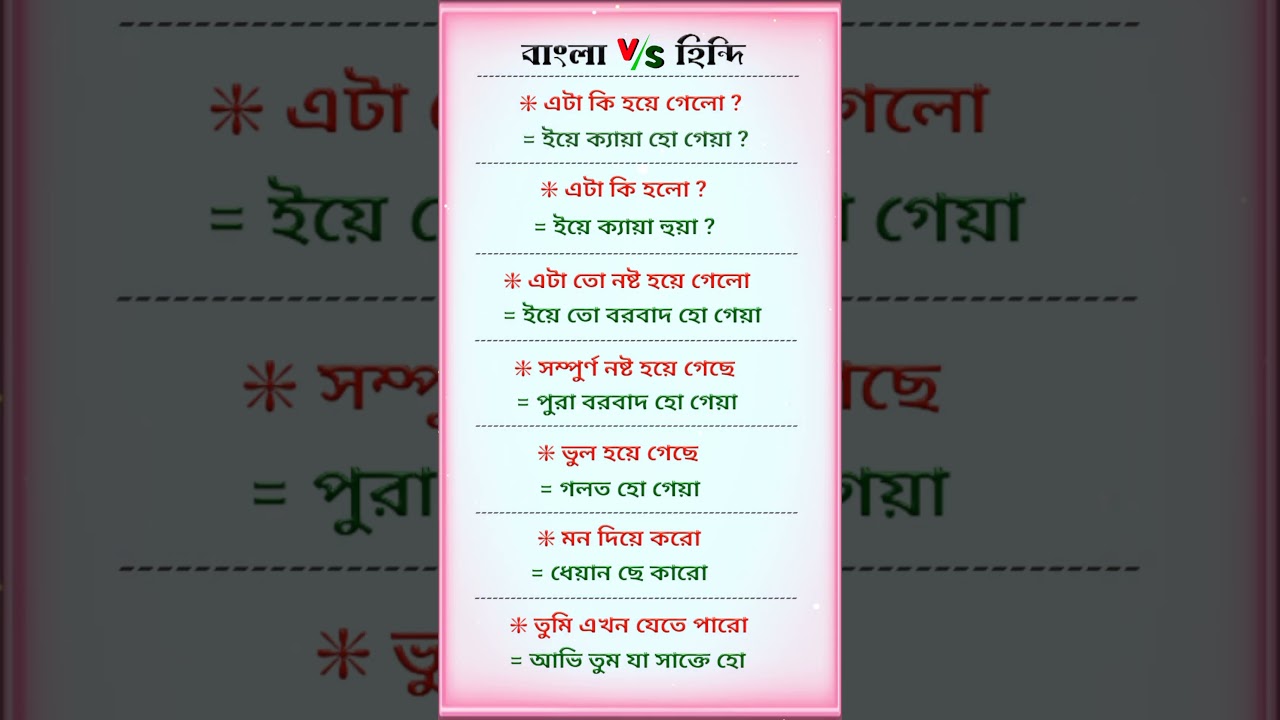 বাংলা V/s হিন্দি
❊ এটা কি হয়ে গেলো ?
= ইয়ে ক্যায়া হো গেয়া ?
❊ এটা কি হলো ?
= ইয়ে ক্যায়া হুয়া ?
❊ এটা তো নষ্ট হয়ে গেলো
= ইয়ে তো বরবাদ হো গেয়া
❊ সম্পুর্ণ নষ্ট হয়ে গেছে
= পুরা বরবাদ হো গেয়া
❊ ভুল হয়ে গেছে
= গলত হো গেয়া
❊ মন দিয়ে করো
= ধেয়ান ছে কারো
❊ তুমি এখন যেতে পারো
= আভি তুম যা সাক্তে হো